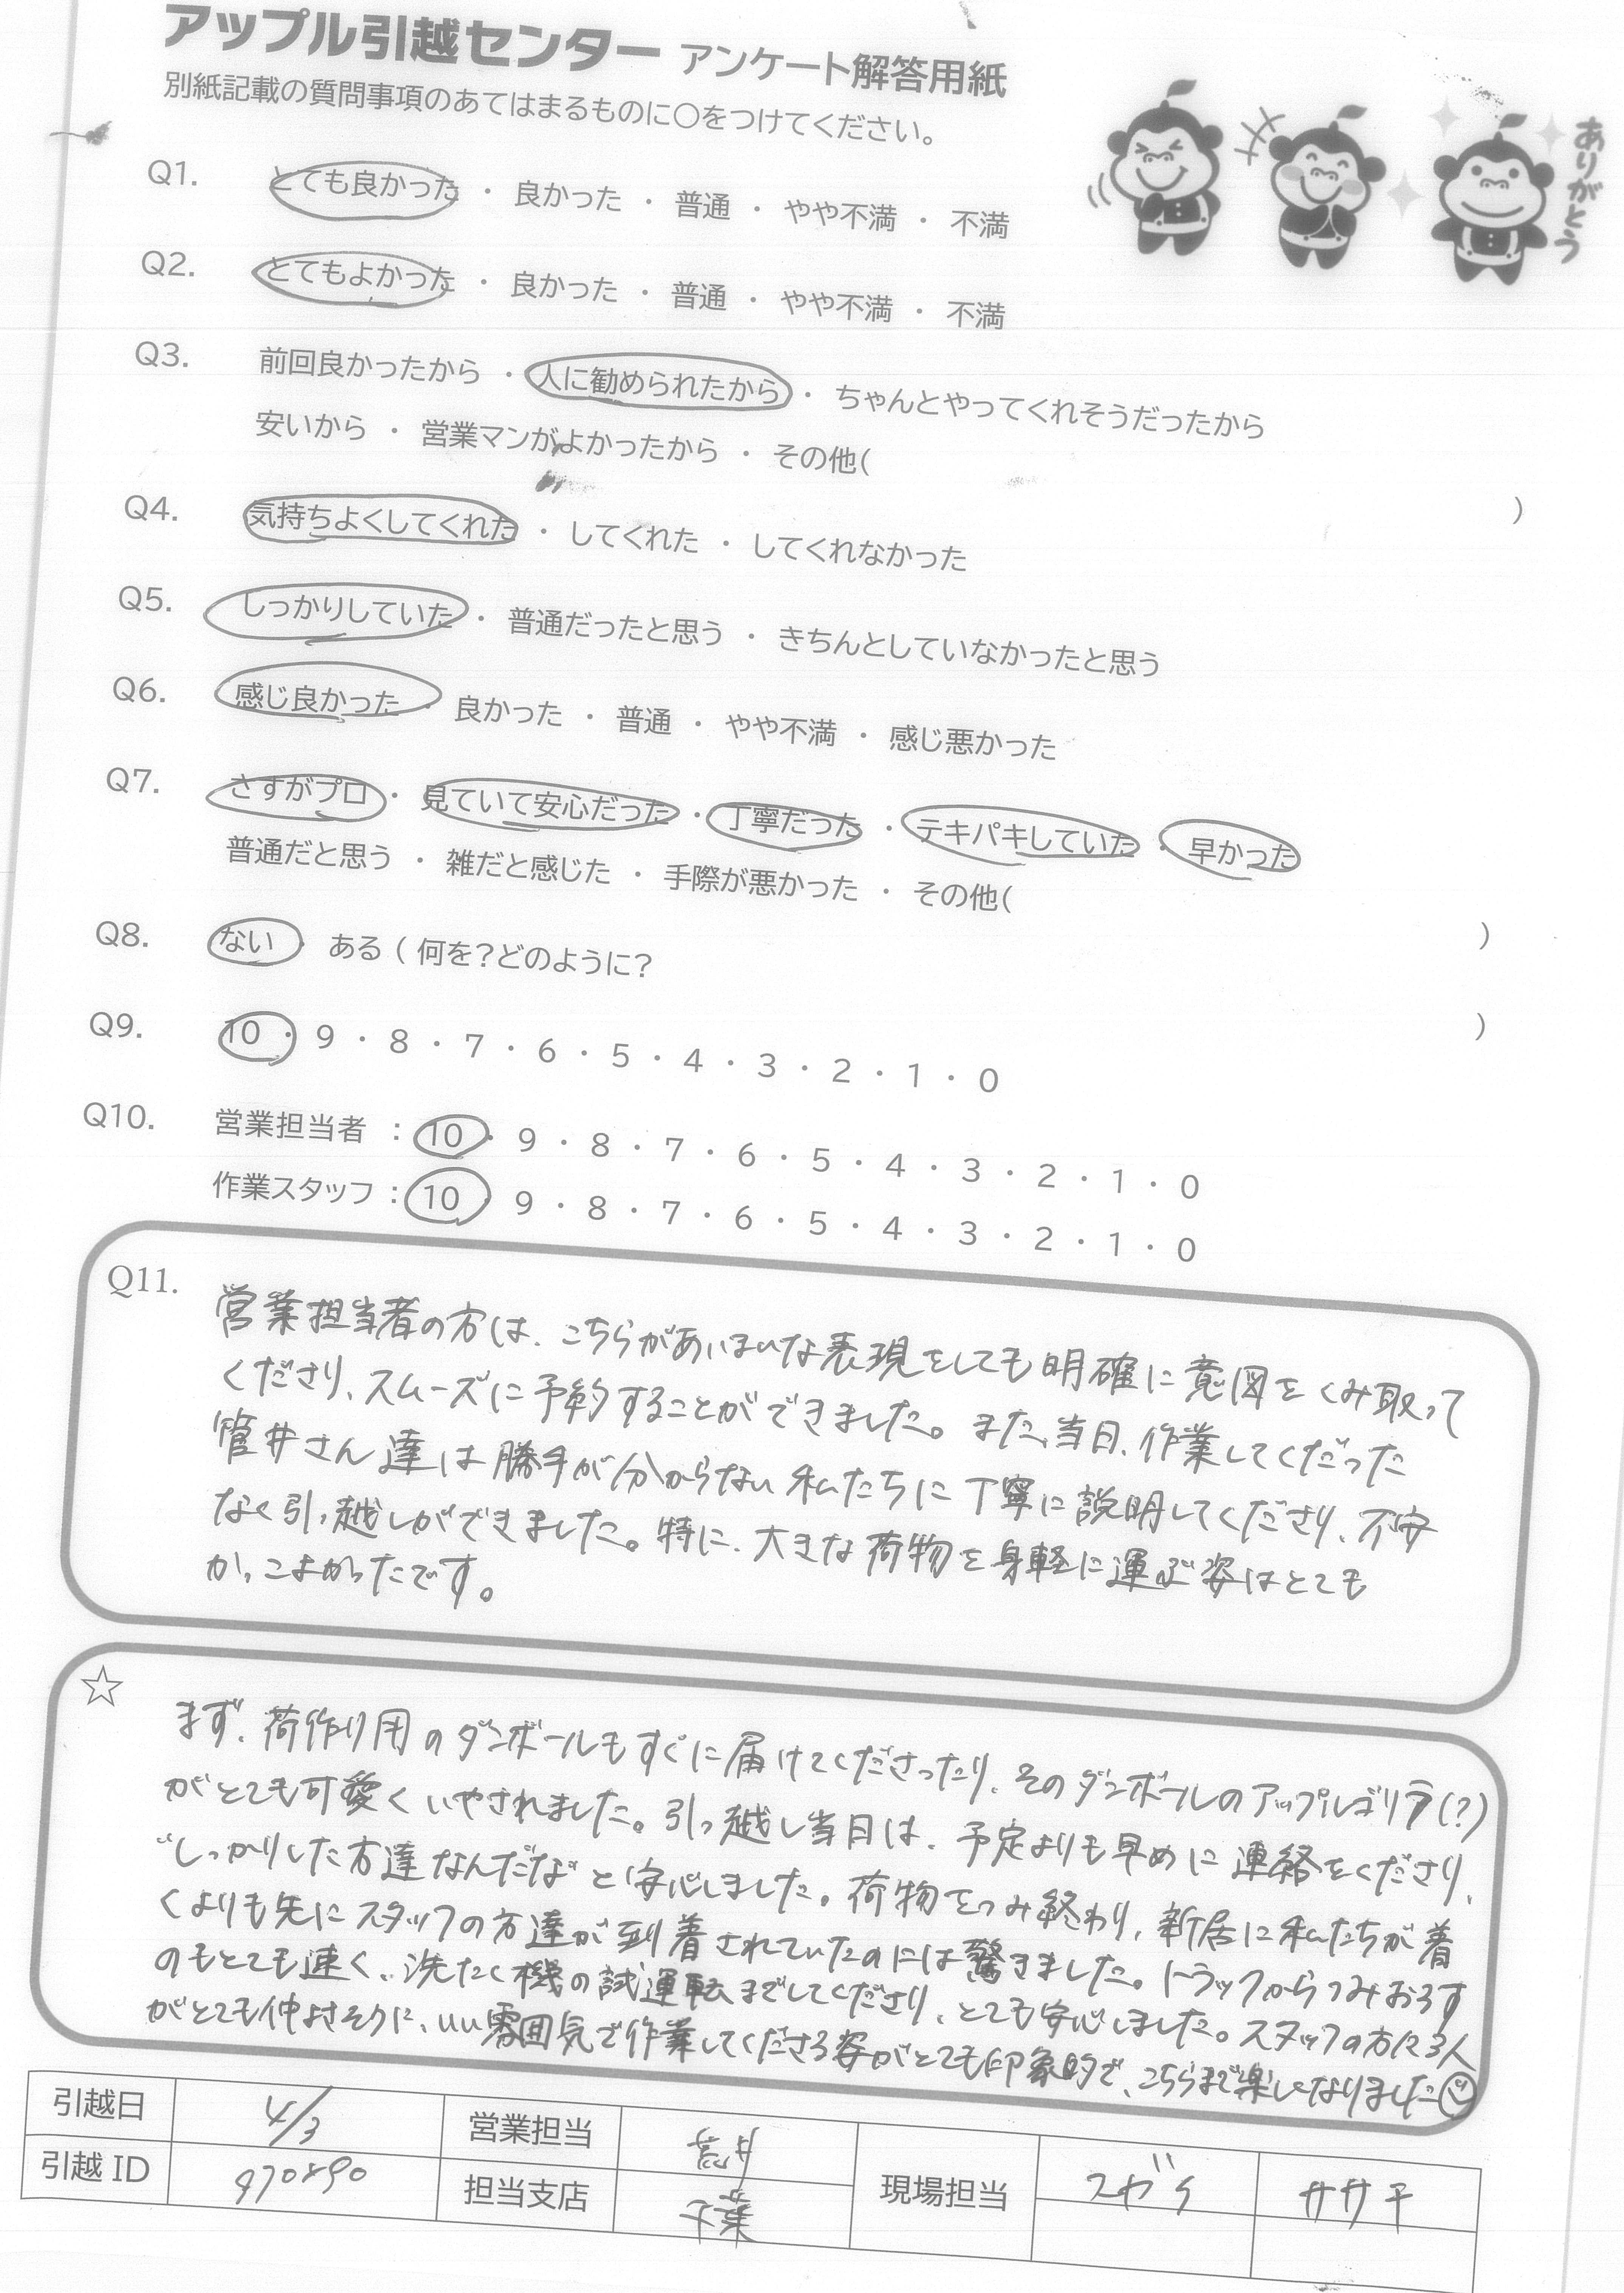 アップル引越センター アンケート解答用紙
別紙記載の質問事項のあてはまるものに○をつけてください。
ありがとう
Q1. とても良かった ・ 良かった ・ 普通 ・ やや不満 ・ 不満
Q2. とてもよかった ・ 良かった ・ 普通 ・ やや不満 ・ 不満
Q3. 前回良かったから ・ 人に勧められたから ・ ちゃんとやってくれそうだったから
安いから ・ 営業マンがよかったから ・ その他( )
Q4. 気持ちよくしてくれた ・ してくれた ・ してくれなかった
Q5. しっかりしていた ・ 普通だったと思う ・ きちんとしていなかったと思う
Q6. 感じ良かった ・ 良かった ・ 普通 ・ やや不満 ・ 感じ悪かった
Q7. さすがプロ ・ 見ていて安心だった ・ 丁寧だった ・ テキパキしていた ・ 早かった
普通だと思う ・ 雑だと感じた ・ 手際が悪かった ・ その他( )
Q8. ない ・ ある ( 何を?どのように? )
Q9. 10 ・ 9 ・ 8 ・ 7 ・ 6 ・ 5 ・ 4 ・ 3 ・ 2 ・ 1 ・ 0
Q10. 営業担当者 : 10 ・ 9 ・ 8 ・ 7 ・ 6 ・ 5 ・ 4 ・ 3 ・ 2 ・ 1 ・ 0
作業スタッフ : 10 ・ 9 ・ 8 ・ 7 ・ 6 ・ 5 ・ 4 ・ 3 ・ 2 ・ 1 ・ 0
Q11. 営業担当者の方は、こちらがあいまいな表現をしても明確に意図をくみ取って
くださり、スムーズに予約することができました。また、当日、作業してくだった
管井さん達は勝手が分からない私たちに丁寧に説明してくださり、不安
なく引っ越しができました。特に、大きな荷物を身軽に運ぶ姿はとても
かっこよかったです。
☆ まず、荷作り用のダンボールもすぐに届けてくださったり、そのダンボールのアップルゴリラ(?)
がとても可愛くいやされました。引っ越し当日は、予定よりも早めに連絡をくださり、
"しっかりした方達なんだな"と安心しました。荷物をつみ終わり、新居に私たちが着
くよりも先にスタッフの方達が到着されていたのには驚きました。トラックからつみおろす
のもとても速く、洗たく機の試運転までしてくださり、とても安心しました。スタッフの方々3人
がとても仲よさそうに、いい雰囲気で作業してくださる姿がとても印象的で、こちらまで楽しくなりました☺
引越日 4/3 営業担当 現場担当 スガイ ササキ
引越 ID 970890 担当支店 千葉